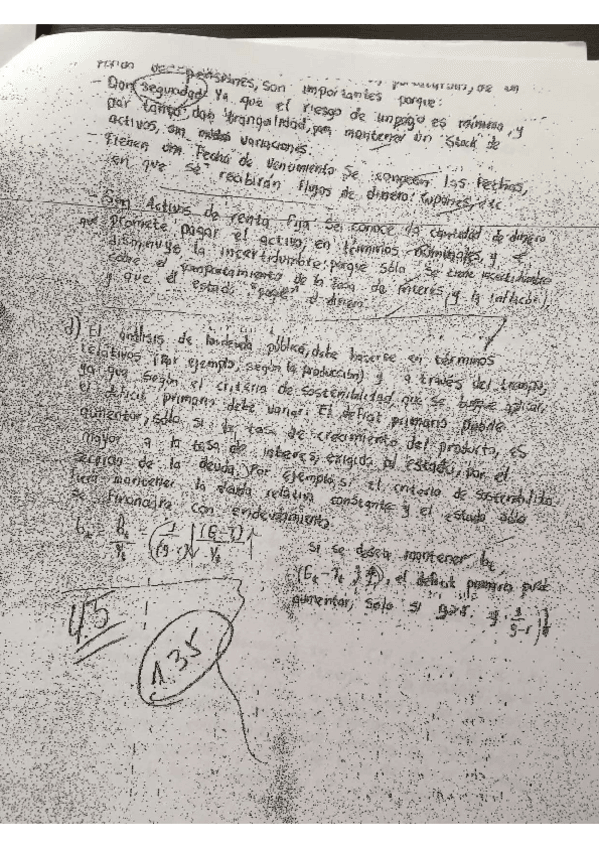 pensiones, son importantes porque:
- Dan seguridad: Ya que el riesgo de impago es mínimo, y
por tanto, dan tranquilidad, para mantener un stock de
activos, sin variaciones.
- Tienen una Fecha de vencimiento se conocen las fechas,
en que se recibirán flujos de dinero: Cupones, etc
- Son Activos de renta fija se conoce la cantidad de dinero
que promete pagar el activo, en términos nominales, y
disminuye la incertidumbre, porque sólo se tiene incertidumbre
sobre el comportamiento de la tasa de interés (y la inflación),
y que el estado el dinero.
d) El análisis de la deuda pública, debe hacerse en términos
relativos (Por ejemplo, según la producción) y a través del tiempo,
ya que según el criterio de sostenibilidad, que se busque aplicar,
el déficit primario debe variar. El déficit primario puede
aumentar, sólo si la tasa de crecimiento del producto, es
mayor a la tasa de interés, exigida al estado, por el
servicio de la deuda. Por ejemplo, si el criterio de sostenibilidad
fuera mantener la deuda relativa constante y el estado sólo
se financiara con endeudamiento.
Si se desea mantener b_t,
el déficit primario puede
aumentar, solo si g>r.
45
1.35